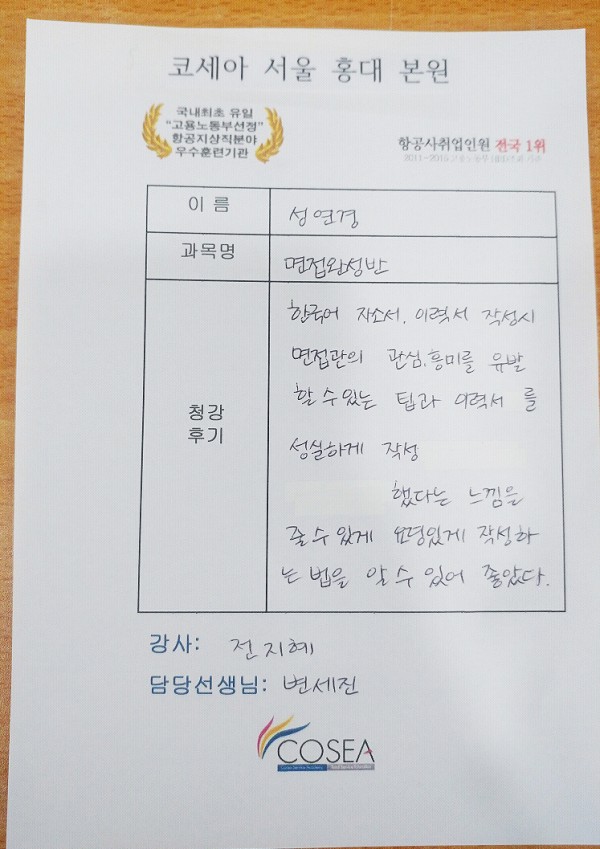 코세아 서울 홍대 본원
국내최초 유일
"고용노동부선정"
항공지상직분야
우수훈련기관
항공사취업인원 전국 1위
이 름
성연경
과목명
면접완성반
청강
후기
한국어 자소서, 이력서 작성시
면접관의 관심,흥미를 유발
할 수 있는 팁과 이력서 를
성실하게 작성
했다는 느낌을
줄 수 있게 요령있게 작성하
는 법을 알 수 있어 좋았다.
강사: 전지혜
담당선생님: 변세진
COSEA